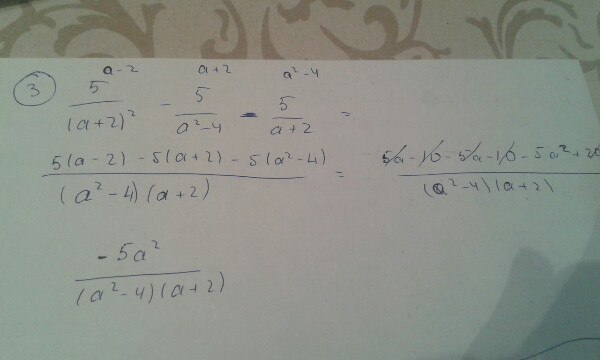 3
a-2 a+2 a²-4
5/(a+2)² - 5/(a²-4) - 5/(a+2) =
(5(a-2) - 5(a+2) - 5(a²-4))/((a²-4)(a+2)) = (5a-10-5a-10-5a²+20)/((a²-4)(a+2))
-5a²/((a²-4)(a+2))